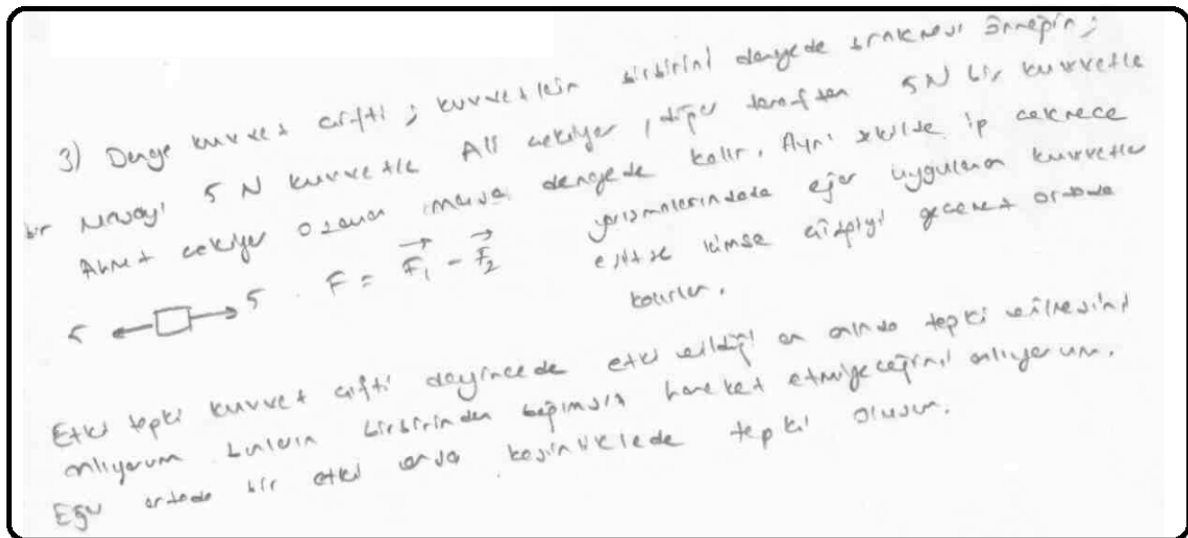 3) Denge kuvvet çifti ; kuvvetlerin birbirini dengede bırakması Örneğin;
bir masayı 5 N kuvvetle Ali çekiyor, diğer taraftan 5N bir kuvvetle
Ahmet çekiyor o zaman masa dengede kalır. Aynı şekilde ip çekmece
yarışmalarındada eğer uygulanan kuvvetler
5 5 . F = F₁ - F₂ eşitse kimse çizgiyi geçemez ortada
kalırlar.
Etki tepki kuvvet çifti deyincede etki edildiği an anında tepki verilmesini
anlıyorum bunların birbirinden bağımsız hareket etmiyeceğini anlıyorum.
Eğer ortada bir etki varsa kesinliklede tepki oluşur.